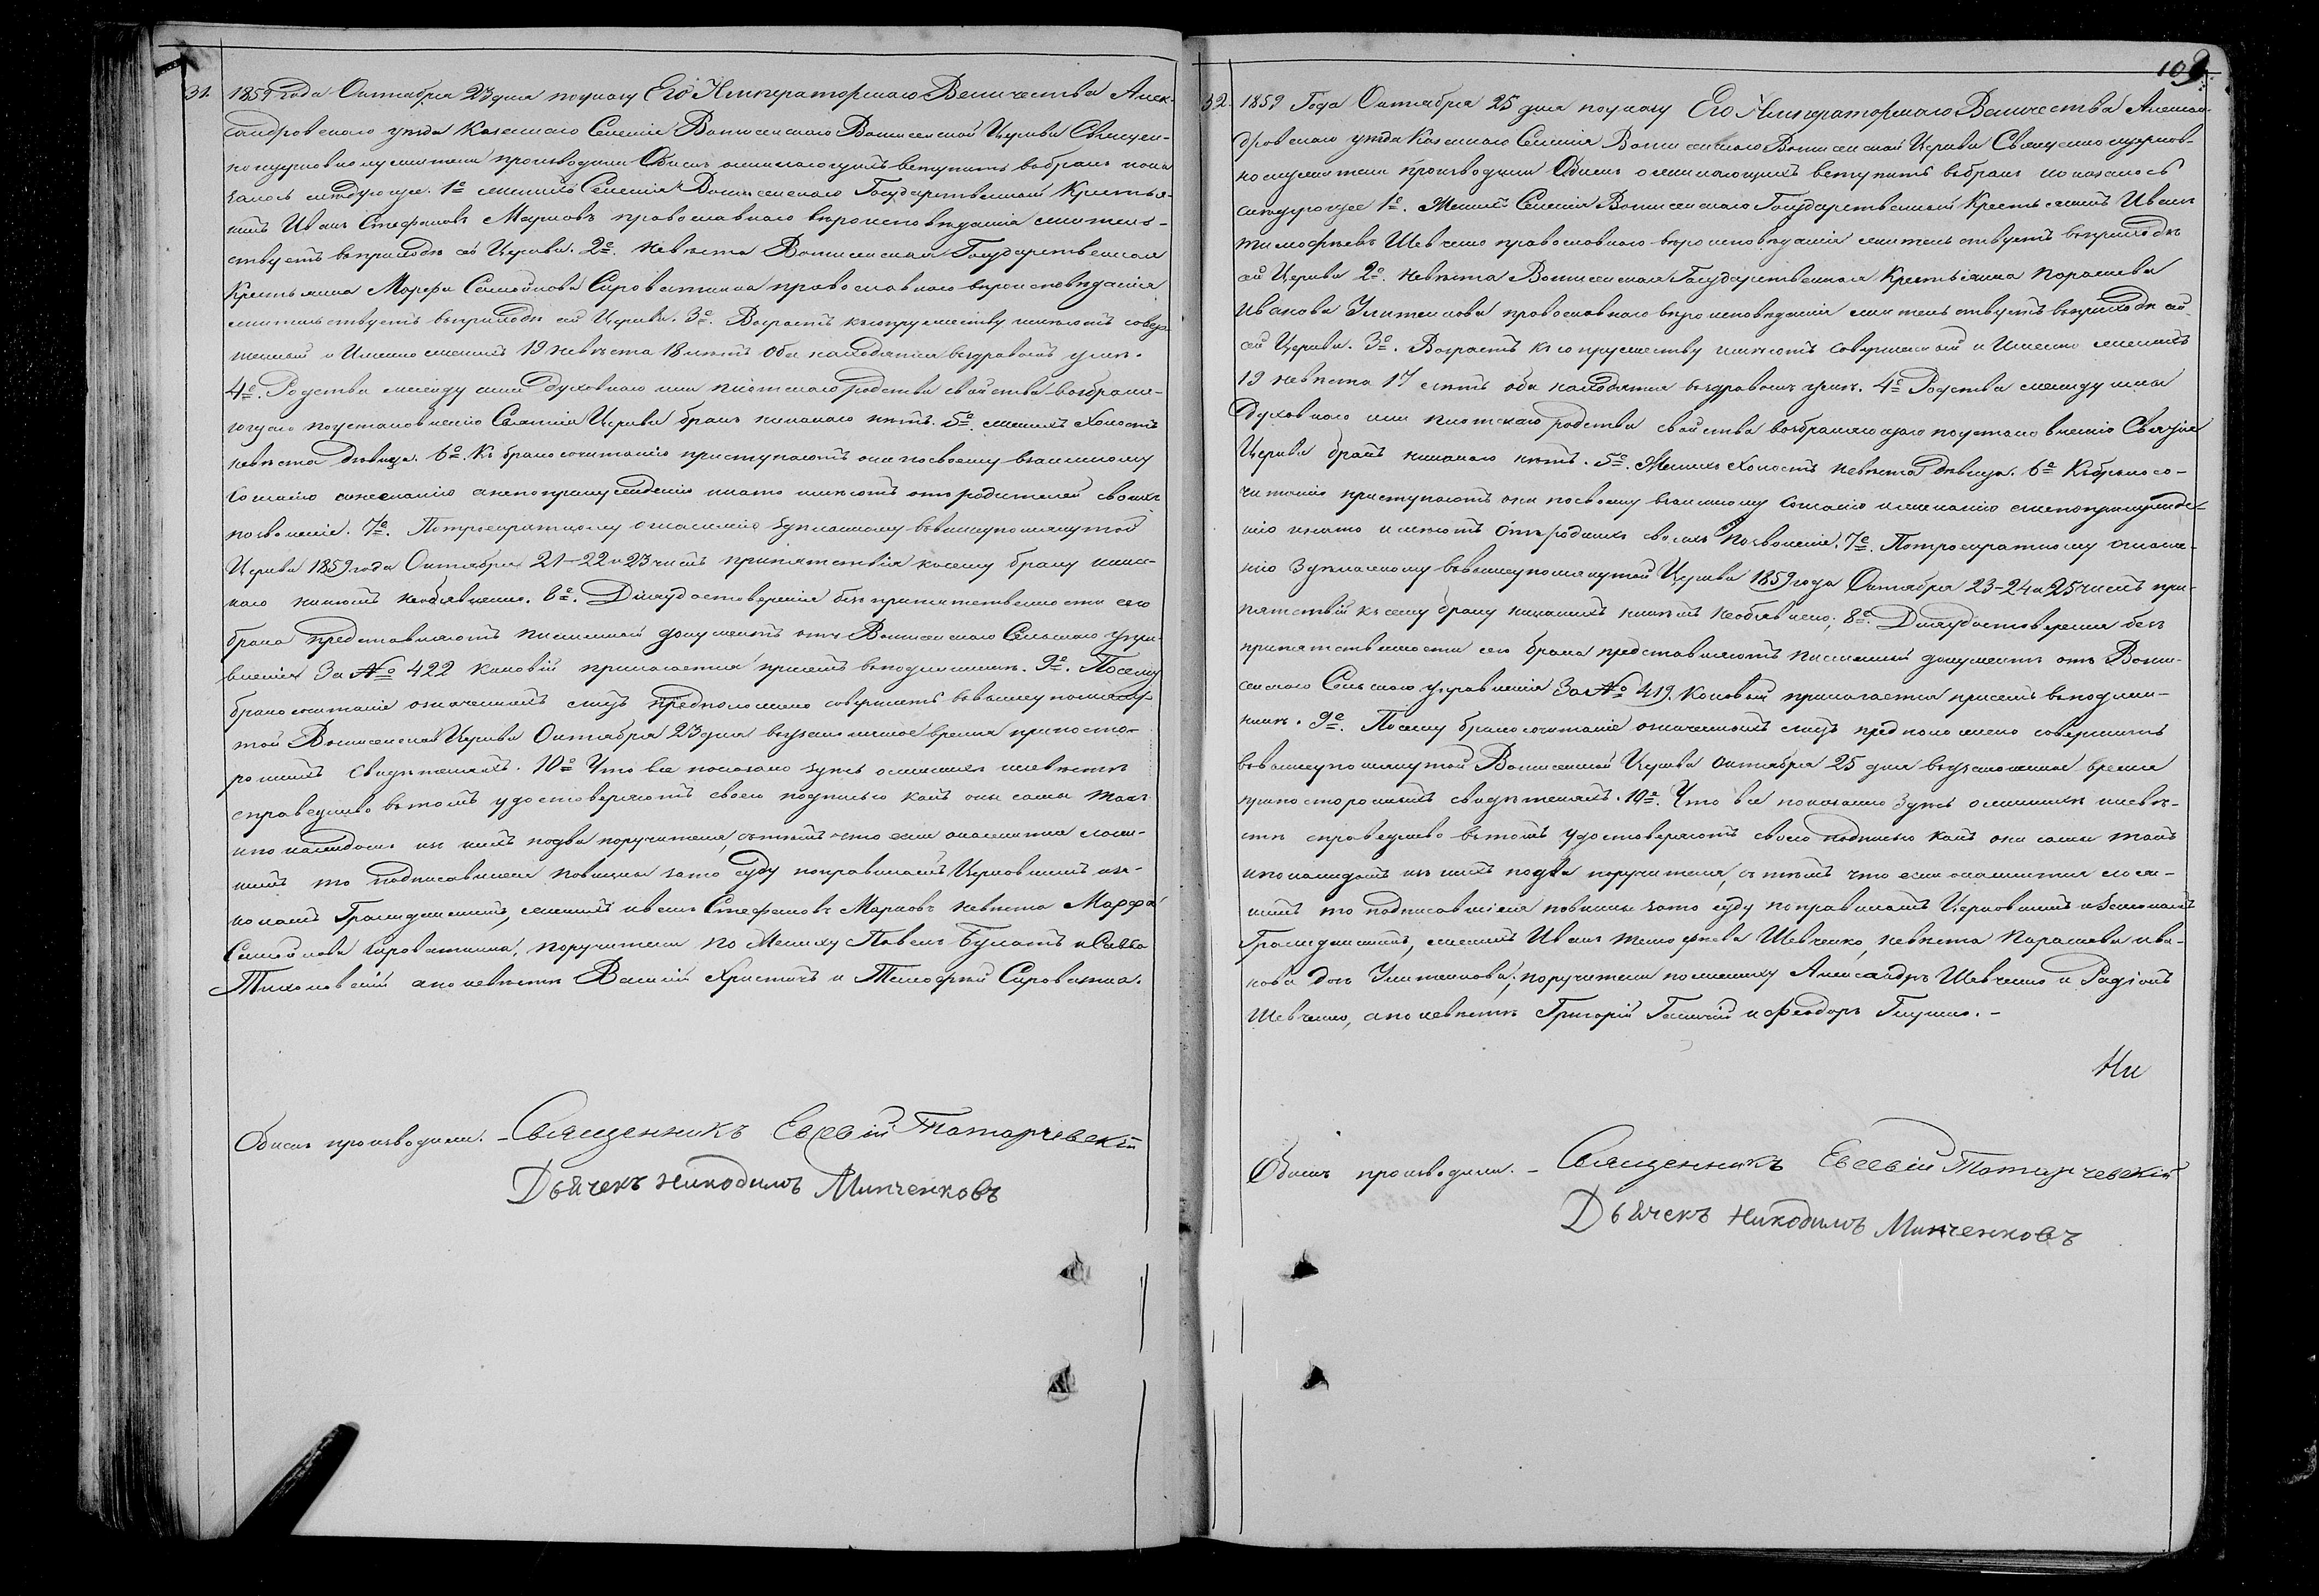 31. 1859 года Октября 23 дня по указу Его Императорскаго Величества Алек-
сандровскаго уезда Казеннаго Селенія Вознесенскаго Вознесенской Церкви Священ-
ноцерковнослужители производили Обыскъ о желающихъ вступить въ бракъ пока
залось следующее. 1е женихъ Селенія Вознесенскаго Государственный Крестья-
нинъ Иванъ Стефановъ Марковъ православнаго вѣроисповѣданія житель-
ствуетъ въ приходѣ сей Церкви. 2е. Невѣста Вознесенская Государственная
Крестьянка Марфа Самойлова Сыроваткина православнаго вѣроисповѣданія
жительствуетъ въ приходѣ сей Церкви. 3е. Возрастъ къ супружеству имѣютъ совер-
шенный и Именно женихъ 19 невѣста 18 лѣтъ Оба находятся въ здравомъ умѣ.
4е. Родства между ими духовнаго или плотскаго родства свойства возбраня-
ющаго по установленію Святыя Церкви бракъ никакого нѣтъ. 5е. женихъ Холостъ
невѣста дѣвица. 6е. Къ бракосочитанію приступаютъ они по своему взаимному
согласію и желанію а не по принужденію на то имѣютъ отъ родителей своихъ
позволеніе. 7е. По троекратному огласкѣ здѣланному въ вышеупомянутой
Церкви 1859 года Октября 21–22 и 23 чиселъ препятствія къ сему браку ника-
каго никемъ необъявлено. 8е. Для удостоверенія безпрепятственности сего
брака представляютъ писменный документъ отъ Вознесенскаго Сельскаго Упра-
вленія За № 422 каковый прилагается присемъ въ подлинникѣ. 9е. Посему
бракосочитаніе означенныхъ лицъ предположено совершить въ вышеупомяну-
той Вознесенской Церкви Октября 23 дня въ узаконенное время при посто-
роннихъ свидѣтеляхъ. 10е Что все показано здѣсь о женихѣ и невѣстѣ
справедливо въ томъ удостоверяютъ своею подписью какъ они сами такъ
и по каждомъ изъ нихъ по два поручителя, съ тѣмъ что если окажется лож-
нымъ то подписавшіеся повинны за то суду по правиламъ Церковнымъ и за-
конамъ Гражданскимъ, женихъ Иванъ Стефановъ Марковъ невѣста Марфа
Самойлова Сыроваткина, поручители по Жениху Павелъ Булатъ и Савва
Тихоновскій а по невѣстѣ Василій Христичъ и Тимофей Сыроватка.
Обыскъ производили. – Священникъ Евсевій Татарчевскій
Дьячекъ Никодимъ Минченковъ
109.
32. 1859 Года Октября 25 дня по указу Его Императорскаго Величества Алексан-
дровскаго уезда Казеннаго Селенія Вознесенскаго Вознесенской Церкви Священноцерков-
нослужители производили Обыскъ о желающихъ вступить въ бракъ и оказалось
следующее 1е. Женихъ Селенія Вознесенскаго Государственный Крестьянинъ Иванъ
Тимофеевъ Шевченко православнаго вѣроисповѣданія жительствуетъ въ приходѣ
сей Церкви 2е. Невѣста Вознесенская Государственная Крестьянка Параскева
Иванова Улитенкова православнаго вѣроисповѣданія жительствуетъ въ приходѣ сей
сей Церкви. 3е. Возрастъ къ супружеству имѣютъ совершенный и Именно женихъ
19 невѣста 17 лѣтъ оба находятся въ здравомъ умѣ. 4е Родства между ими
духовнаго или плотскаго родства свойства возбраняющаго по установленію Святыя
Церкви бракъ никакого нѣтъ. 5е. Женихъ Холостъ невѣста дѣвица. 6е Къ бракосо-
читанію приступаютъ они по своему взаимному согласію и желанію а не по принужде-
нію на то имѣютъ отъ родныхъ своихъ позволеніе. 7е. По троекратному огласке-
нію Здѣланному въ вышеупомянутой Церкви 1859 года Октября 23–24 и 25 чиселъ пре-
пятствій къ сему браку никакихъ никѣмъ необъявлено, 8е. Для удостоверенія без-
препятственности сего брака представляютъ писменный документъ отъ Возне-
сенскаго Сельскаго управленія За № 419. Каковый прилагается присемъ въ подлин-
никѣ. 9е. Посему бракосочитаніе означенныхъ лицъ предположено совершить
въ вышеупомянутой Вознесенской Церкви октября 25 дня въ узаконенное время
при постороннихъ свидѣтеляхъ. 10е. Что все показанно Здѣсь о женихѣ и невѣ-
стѣ справедливо въ томъ удостоверяютъ своею подписью какъ они сами такъ
и по каждомъ изъ нихъ по два поручителя, съ тѣмъ что если окажется лож-
нымъ то подписавшіеся повинны за то суду по правиламъ Церковнымъ и Законамъ
Гражданскимъ, женихъ Иванъ Тимофеевъ Шевченко, невѣста Параскева Ива-
нова дочь Улитенкова; поручители по жениху Александръ Шевченко и Радіонъ
Шевченко, а по невѣстѣ Григорій Галичій и Феодоръ Глушко. –
Ни
Обыскъ производили. – Священникъ Евсевій Татарчевскій
Дьячекъ Никодимъ Минченковъ